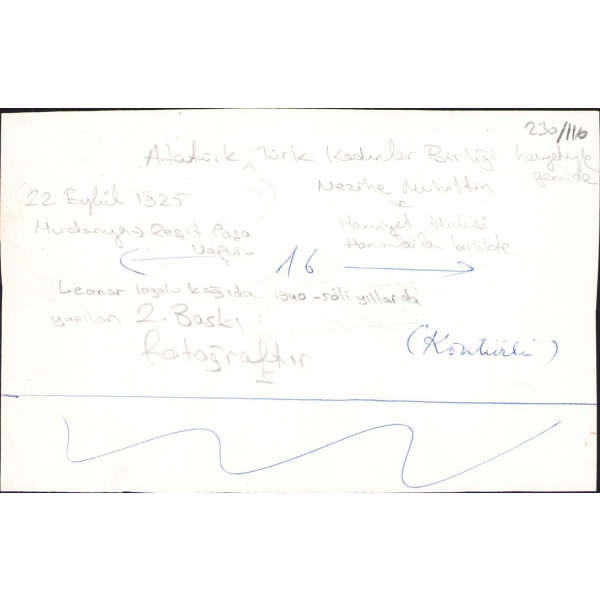 230/116
Atatürk, Türk Kadınlar Birliği heyetiyle
gemide
22 Eylül 1925
Nezihe Muhittin
ve
Mudanya Reşit Paşa
Vapuru
Hamiyet Hulusi
Hanımlarla birlikte
16
Leonar logolu kağıda 1940-50li yıllarda
yapılan 2. Baskı
fotoğraftır
(Köntürlü)